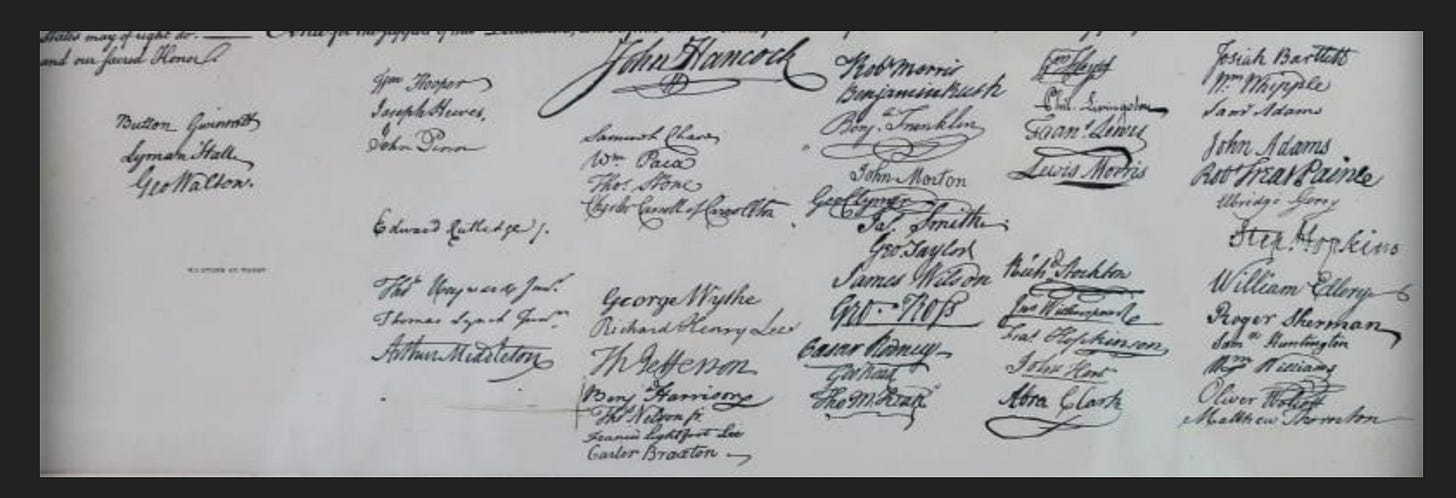 States may of right do.
and our sacred Honor.
Button Gwinnett
Lyman Hall
Geo Walton.
Wm Hooper
Joseph Hewes,
John Penn
Edward Rutledge /.
Thos Heyward Junr.
Thomas Lynch Junr.
Arthur Middleton
John Hancock
Samuel Chase
Wm. Paca
Thos. Stone
Charles Carroll of Carrollton
George Wythe
Richard Henry Lee
Th Jefferson
Benj Harrison
Thos Nelson jr.
Francis Lightfoot Lee
Carter Braxton
Robt Morris
Benjamin Rush
Benj. Franklin
John Morton
Geo Clymer
Jas. Smith
Geo. Taylor
James Wilson
Geo. Ross
Caesar Rodney
Geo Read
Tho M:Kean
Wm Floyd
Phil. Livingston
Frans. Lewis
Lewis Morris
Richd. Stockton
Jno Witherspoon
Fras. Hopkinson
John Hart
Abra Clark
Josiah Bartlett
Wm. Whipple
Saml Adams
John Adams
Robt Treat Paine
Elbridge Gerry
Step. Hopkins
William Ellery
Roger Sherman
Samel Huntington
Wm Williams
Oliver Wolcott
Matthew Thornton